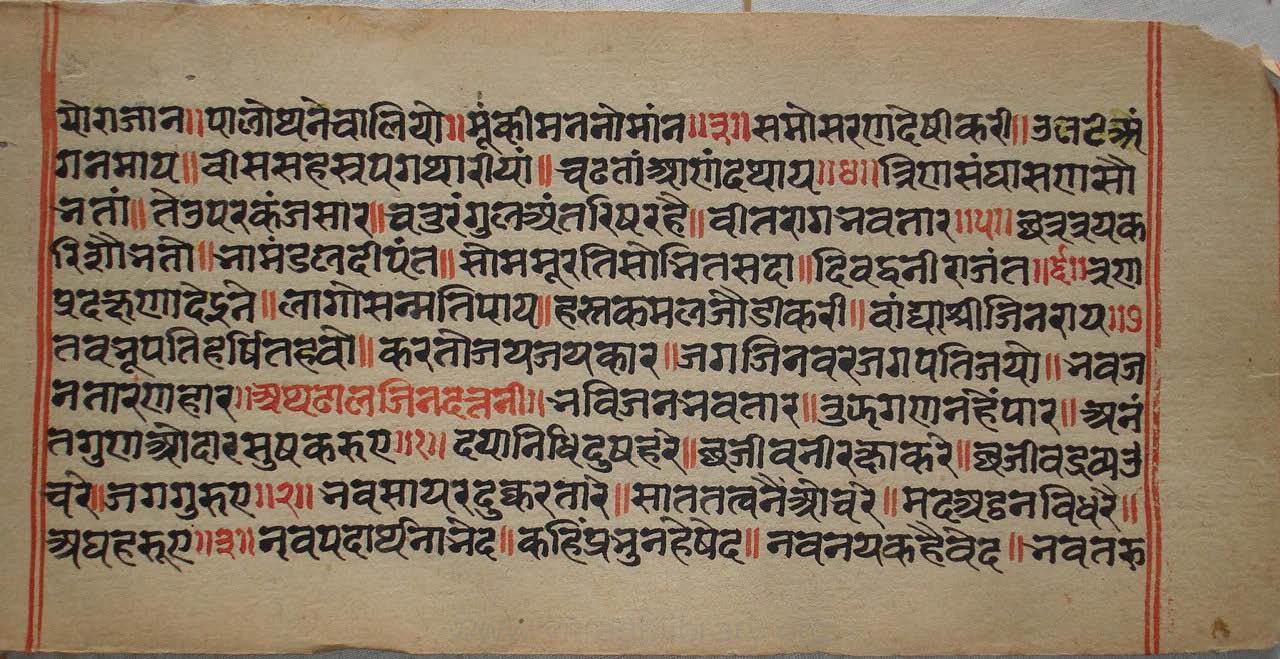 योराजान॥पालोथनेवालियो॥मूंकीमननोमांन॥३॥समोसरणदेषीकरी॥उलटअं
गनमाय॥वीससहस्रपगथारीयां॥चढतांआणंदथाय॥४॥त्रिणसंघासणसो
नतां॥तेउपरकंजसार॥चतुरंगुलअंतरिषरहै॥वीतरागभवतार॥५॥छत्रत्रयक
रिशोभतो॥भामंडलदीपंत॥सोममूरतिसोभितसदा॥दिवधनीराजंत॥६॥त्रण
प्रदक्षणादेइने॥लागोसन्मतिपाय॥हस्तकमलजोडीकरी॥वांद्याश्रीजिनराय॥७
तवभूपतिहर्षितहवो॥करतोजयजयकार॥जगजिनवरजगपतिजयो॥भवज
नतारणहार॥अथढालजिनदत्तनी॥भविजनभवतार॥तुफगणनहेंपार॥अनं
तगुणओदारसुषकरुए॥१॥दयानिधिदुषहरं॥छजीवनीरक्षाकरं॥छजीवद्रव्यउ
चरे॥जगगुरुए॥२॥भवसायरदुक्करतारे॥साततत्वनेंओचरे॥मदअष्टनविधरे॥
अघहरूए॥३॥नवपदार्थनाभेद॥कहिंप्रभुनहेषेद॥नवनयकहैवेद॥भवतरु